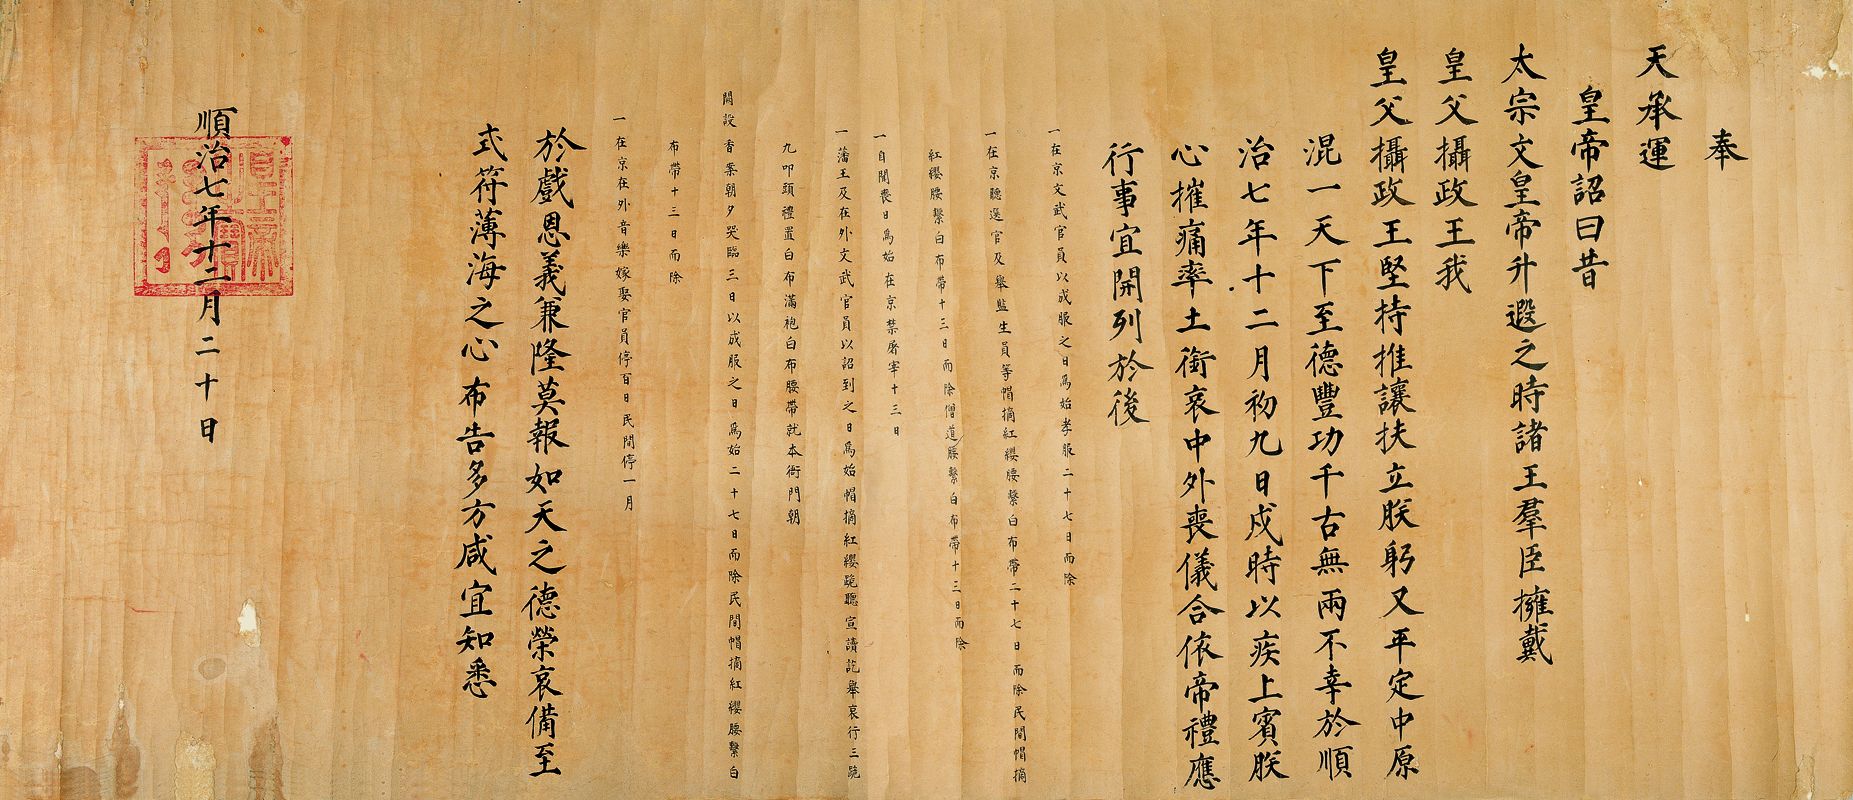 奉
天承運
皇帝詔曰昔
太宗文皇帝升遐之時諸王羣臣擁戴
皇父攝政王我
皇父攝政王堅持推讓扶立朕躬又平定中原
混一天下至德豐功千古無兩不幸於順
治七年十二月初九日戌時以疾上賓朕
心摧痛率土銜哀中外喪儀合依帝禮應
行事宜開列於後
一在京文武官員以成服之日爲始孝服二十七日而除
一在京聽選官及舉監生員等帽摘紅纓腰繫白布帶二十七日而除民間帽摘
紅纓腰繫白布帶十三日而除僧道腰繫白布帶十三日而除
一自聞喪日爲始在京禁屠宰十三日
一藩王及在外文武官員以詔到之日爲始帽摘紅纓跪聽宣讀訖舉哀行三跪
九叩頭禮置白布滿袍白布腰帶就本衙門朝
闕設香案朝夕哭臨三日以成服之日爲始二十七日而除民間帽摘紅纓腰繫白
布帶十三日而除
一在京在外音樂嫁娶官員停百日民間停一月
於戲恩義兼隆莫報如天之德榮哀備至
式符薄海之心布告多方咸宜知悉
順治七年十二月二十日
皇帝之寶